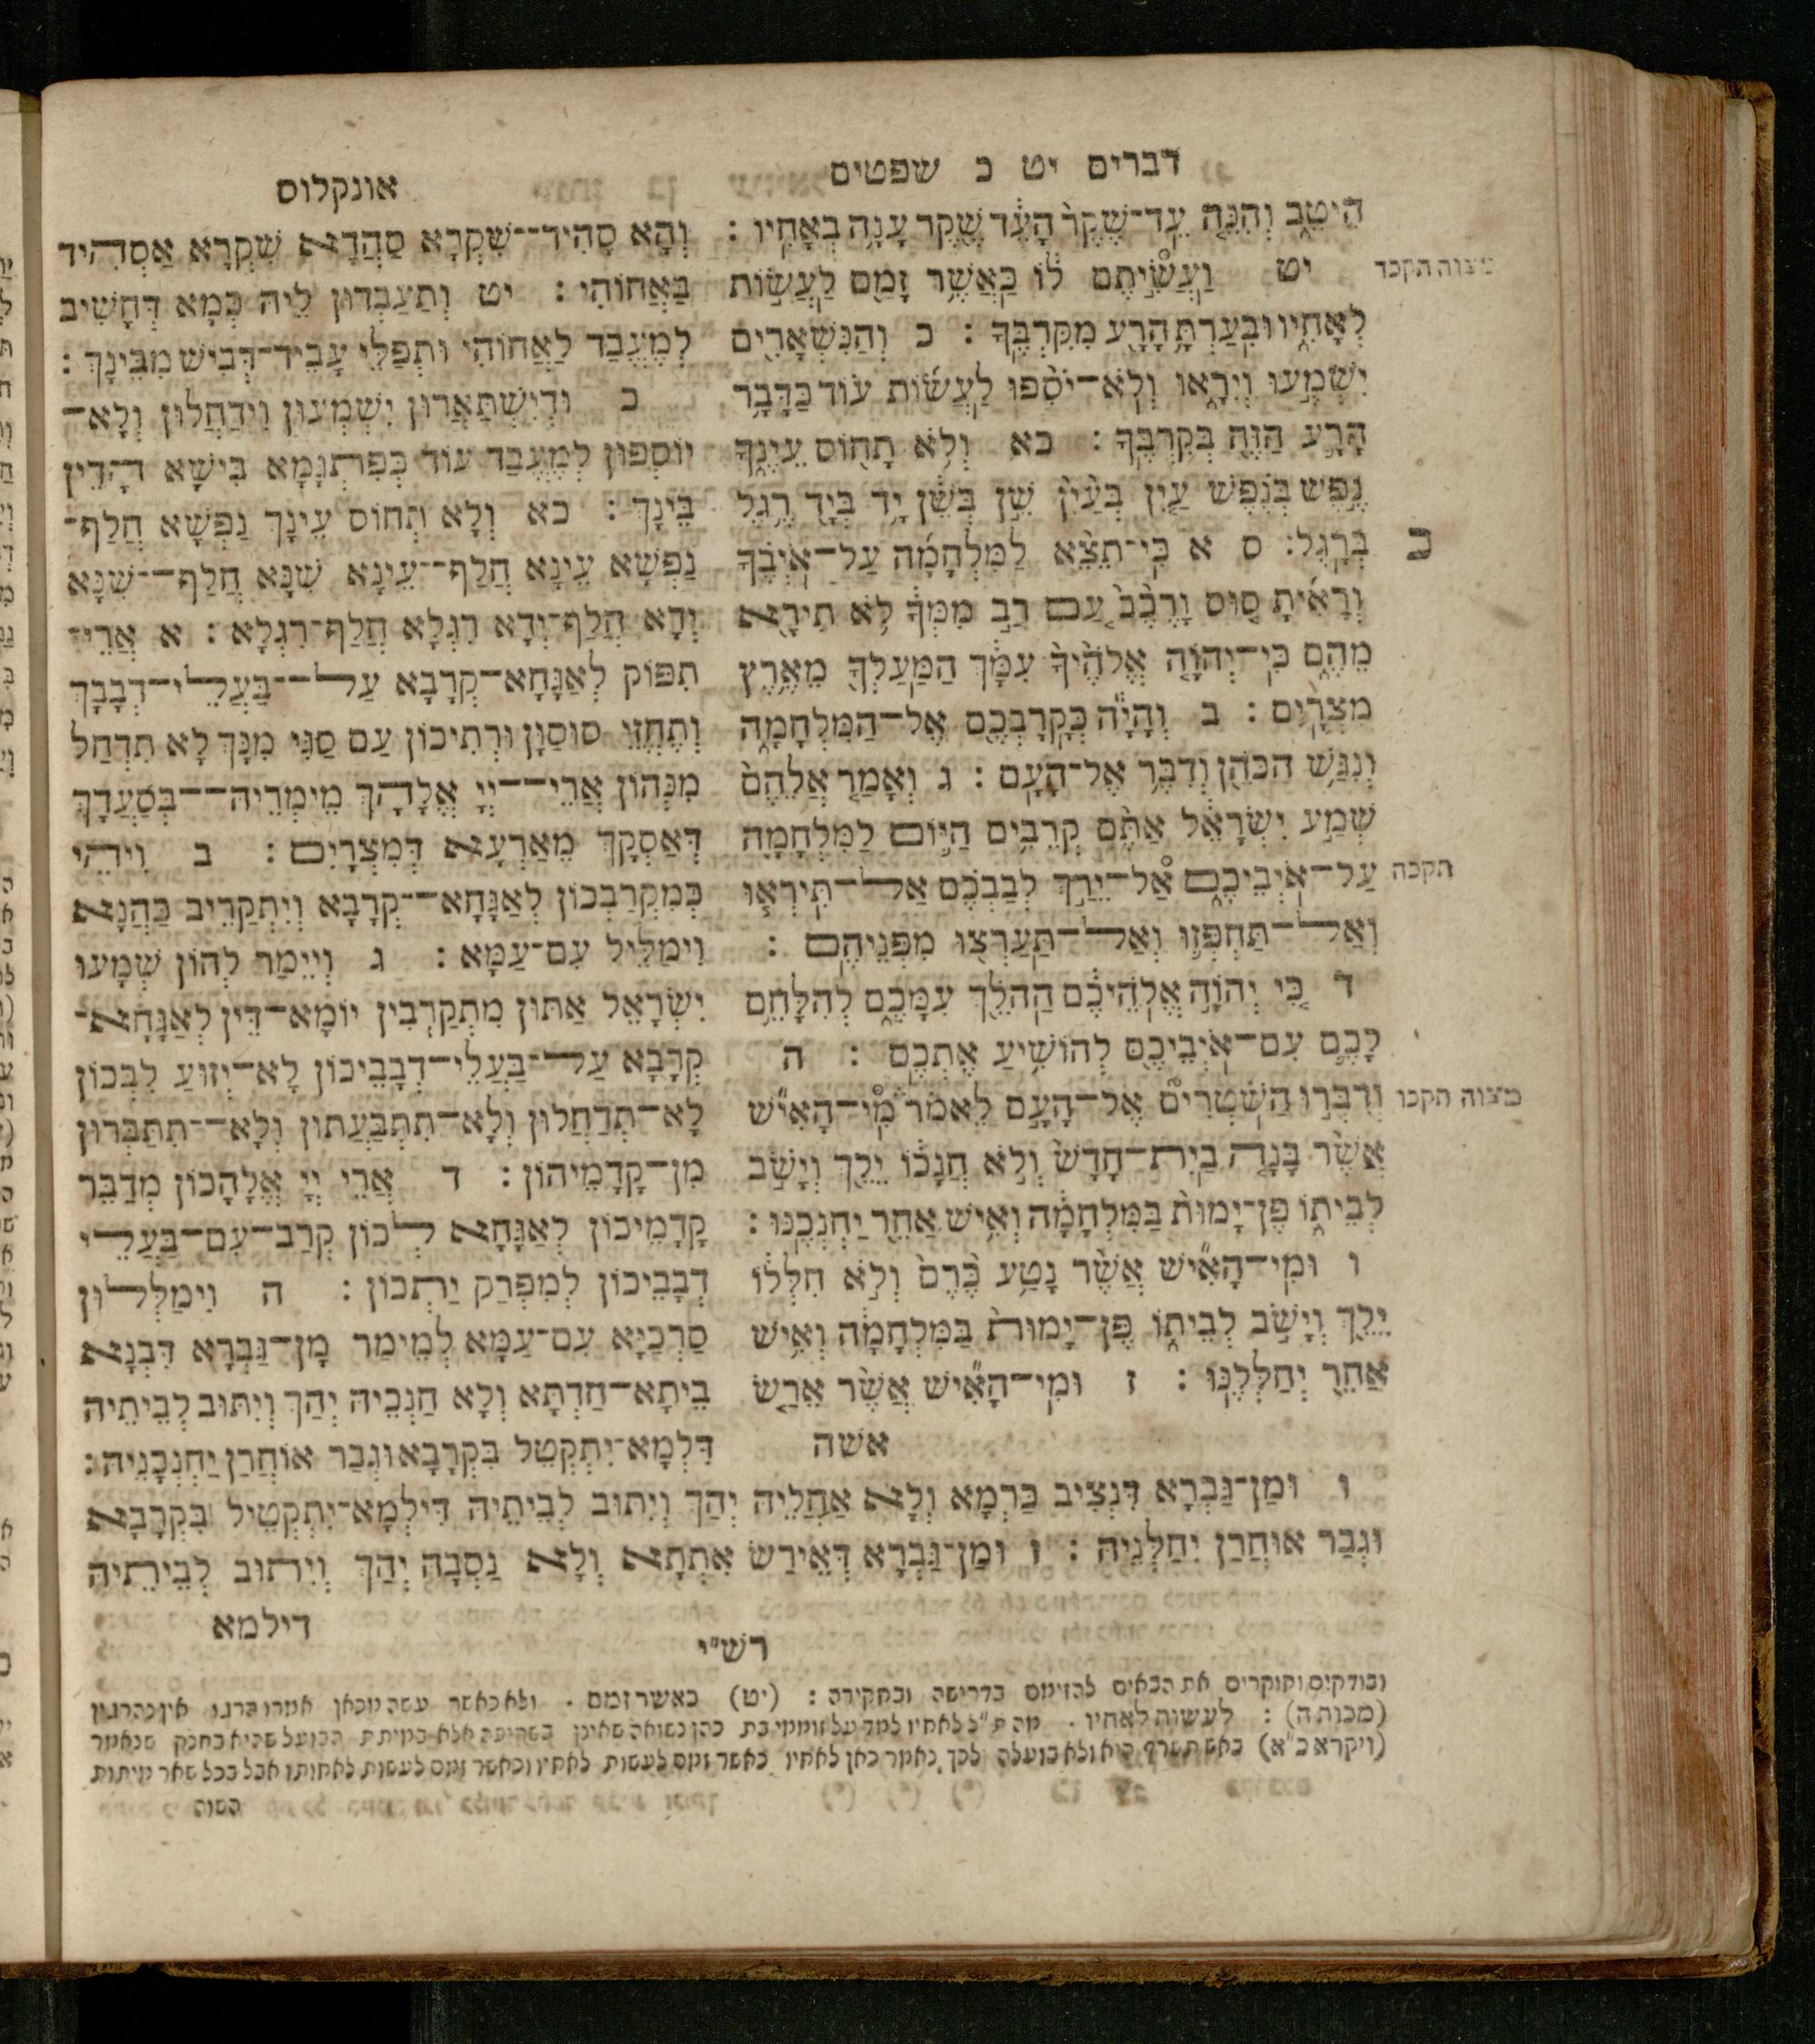 דברים יט כ שפטים
הֵיטֵ֑ב וְהִנֵּ֤ה עֵֽד־שֶׁ֙קֶר֙ הָעֵ֔ד שֶׁ֖קֶר עָנָ֥ה בְאָחִֽיו :
יט וַעֲשִׂ֣יתֶם ל֔וֹ כַּאֲשֶׁ֥ר זָמַ֖ם לַעֲשׂ֣וֹת
לְאָחִ֑יו וּבִֽעַרְתָּ֥ הָרָ֖ע מִקִּרְבֶּֽךָ : כ וְהַנִּשְׁאָרִ֖ים
יִשְׁמְע֣וּ וְיִרָ֑אוּ וְלֹֽא־יֹסִ֨פוּ לַעֲשׂ֜וֹת ע֗וֹד כַּדָּבָ֥ר
הָרָ֛ע הַזֶּ֖ה בְּקִרְבֶּֽךָ : כא וְלֹ֥א תָח֖וֹס עֵינֶ֑ךָ
נֶ֣פֶשׁ בְּנֶ֗פֶשׁ עַ֤יִן בְּעַ֙יִן֙ שֵׁ֣ן בְּשֵׁ֔ן יָ֥ד בְּיָ֖ד רֶ֥גֶל
בְּרָֽגֶל: ס א כִּֽי־תֵצֵ֨א לַמִּלְחָמָ֜ה עַל־אֹיְבֶ֗ךָ
וְרָאִ֜יתָ ס֤וּס וָרֶ֙כֶב֙ עַ֚ם רַ֣ב מִמְּךָ֔ לֹ֥א תִירָ֖א
מֵהֶ֑ם כִּֽי־יְהוָ֤ה אֱלֹהֶ֙יךָ֙ עִמָּ֔ךְ הַמַּֽעַלְךָ֖ מֵאֶ֥רֶץ
מִצְרָֽיִם : ב וְהָיָ֕ה כְּקָֽרָבְכֶ֖ם אֶל־הַמִּלְחָמָ֑ה
וְנִגַּ֥שׁ הַכֹּהֵ֖ן וְדִבֶּ֥ר אֶל־הָעָֽם : ג וְאָמַ֤ר אֲלֵהֶם֙
שְׁמַ֣ע יִשְׂרָאֵ֔ל אַתֶּ֨ם קְרֵבִ֥ים הַיּ֛וֹם לַמִּלְחָמָ֖ה
עַל־אֹיְבֵיכֶ֑ם אַל־יֵרַ֣ךְ לְבַבְכֶ֗ם אַל־תִּֽירְא֧וּ
וְאַֽל־תַּחְפְּז֛וּ וְאַל־תַּֽעַרְצ֖וּ מִפְּנֵיהֶֽם :
ד כִּ֚י יְהוָ֣ה אֱלֹֽהֵיכֶ֔ם הַהֹלֵ֖ךְ עִמָּכֶ֑ם לְהִלָּחֵ֥ם
לָכֶ֛ם עִם־אֹיְבֵיכֶ֖ם לְהוֹשִׁ֥יעַ אֶתְכֶֽם : ה
וְדִבְּר֣וּ הַשֹּֽׁטְרִים֮ אֶל־הָעָ֣ם לֵאמֹר֒ מִֽי־הָאִ֞ישׁ
אֲשֶׁ֨ר בָּנָ֤ה בַֽיִת־חָדָשׁ֙ וְלֹ֣א חֲנָכ֔וֹ יֵלֵ֖ךְ וְיָשֹׁ֣ב
לְבֵית֑וֹ פֶּן־יָמוּת֙ בַּמִּלְחָמָ֔ה וְאִ֥ישׁ אַחֵ֖ר יַחְנְכֶֽנּוּ :
ו וּמִֽי־הָאִ֞ישׁ אֲשֶׁר־נָטַ֥ע כֶּ֙רֶם֙ וְלֹ֣א חִלְּל֔וֹ
יֵלֵ֖ךְ וְיָשֹׁ֣ב לְבֵית֑וֹ פֶּן־יָמוּת֙ בַּמִּלְחָמָ֔ה וְאִ֥ישׁ
אַחֵ֖ר יְחַלְּלֶֽנּוּ : ז וּמִֽי־הָאִ֞ישׁ אֲשֶׁר־אֵרַ֤שׂ
אשה
תקכה
מצוה תקכו
כ
אונקלוס
וְהָא סָהִיד־־שִׁקְרָא סַהֲדָא שִׁקְרָא אַסְהִיד
בַּאֲחוֹהִי : יט וְתַעַבְדוּן לֵיהּ כְּמָא דְּחָשִׁיב
לְמֶעֱבַד לַאֲחוֹהִי וּתְפַלֵּי עָבֵיד־דְּבִישׁ מִבֵּינָךְ :
כ וּדְיִשְׁתַּאֲרוּן יִשְׁמְעוּן וְיִדְחֲלוּן וְלָא־
יוֹסְפוּן לְמֶעֱבַד עוֹד כְּפִתְגָּמָא בִּישָׁא הָדֵין
בֵּינָךְ : כא וְלָא תְחוֹס עֵינָךְ נַפְשָׁא חֲלַף־
נַפְשָׁא עֵינָא חֲלַף־־עֵינָא שִׁנָּא חֲלַף־־שִׁנָּא
יְדָא חֲלַף־יְדָא רִגְלָא חֲלַף־רִגְלָא : א אֲרֵי־
תִפּוֹק לְאַגָּחָא־קְרָבָא עַל־־בַּעֲלֵי־דְבָבָךְ
וְתֶחֱזֵי סוּסָוָן וּרְתִיכוֹן עַם סַגִּי מִנָּךְ לָא תִדְחַל
מִנְּהוֹן אֲרֵי־־יְיָ אֱלָהָךְ מֵימְרֵיהּ־־בְּסַעֲדָךְ
דְּאַסְּקָךְ מֵאַרְעָא דְּמִצְרָיִם : ב וִיהֵי
כְּמִקְרַבְכוֹן לְאַגָּחָא־־קְרָבָא וְיִתְקָרֵיב כַּהֲנָא
וִימַלֵּיל עִם־עַמָּא : ג וְיֵימַר לְהוֹן שְׁמָעוּ
יִשְׂרָאֵל אַתּוּן מִתְקָרְבִין יוֹמָא־דֵין לְאַגָּחָא־
קְרָבָא עַל־־בַּעֲלֵי־דְבָבֵיכוֹן לָא־יְזוּעַ לִבְּכוֹן
לָא־תִדְחֲלוּן וְלָא־תִתְבַּעֲתוּן וְלָא־־תִתַּבְרוּן
מִן־קֳדָמֵיהוֹן : ד אֲרֵי יְיָ אֱלָהֲכוֹן מְדַבֵּר
קֳדָמֵיכוֹן לְאַגָּחָא לְכוֹן קְרָב־עִם־בַּעֲלֵי
דְבָבֵיכוֹן לְמִפְרַק יַתְכוֹן : ה וִימַלְּלוּן
סַרְכַיָּא עִם־עַמָּא לְמֵימַר מָן־גַּבְרָא דִּבְנָא
בֵיתָא־חַדְתָּא וְלָא חַנְכֵיהּ יְהַךְ וְיִתּוּב לְבֵיתֵיהּ
דִּלְמָא־יִתְקְטֵל בִּקְרָבָא וּגְבַר אוֹחֲרָן יַחְנְכִנֵּיהּ :
ו וּמַן־גַּבְרָא דִּנְצִיב כַּרְמָא וְלָא אַחֲלֵיהּ יְהַךְ וְיִתּוּב לְבֵיתֵיהּ דִּילְמָא־יִתְקְטֵיל בִּקְרָבָא
וּגְבַר אוֹחֲרָן יַחֲלִנֵּיהּ : ז וּמַן־גַּבְרָא דְּאֵירַשׂ אִתְּתָא וְלָא נַסְבָהּ יְהַךְ וְיִתוּב לְבֵיתֵיהּ
דילמא
רש"י
ובודקים וחוקרים את הבאים להזימם בדרישה ובחקירה : (יט) כאשר זמם . ולא כאשר עשה מכאן אמרו הרגו אין נהרגין
(מכות ה) : לעשות לאחיו . מה ת"ל לאחיו למד על זוממי בת כהן נשואה שאינן בשריפה אלא כמיתת הבועל שהיא בחנק שנאמר
(ויקרא כ"א) באש תשרף היא ולא בועלה לכך נאמר כאן לאחיו כאשר זמם לעשות לאחיו ולא כאשר זמם לעשות לאחותו אבל בכל שאר מיתות
השוה